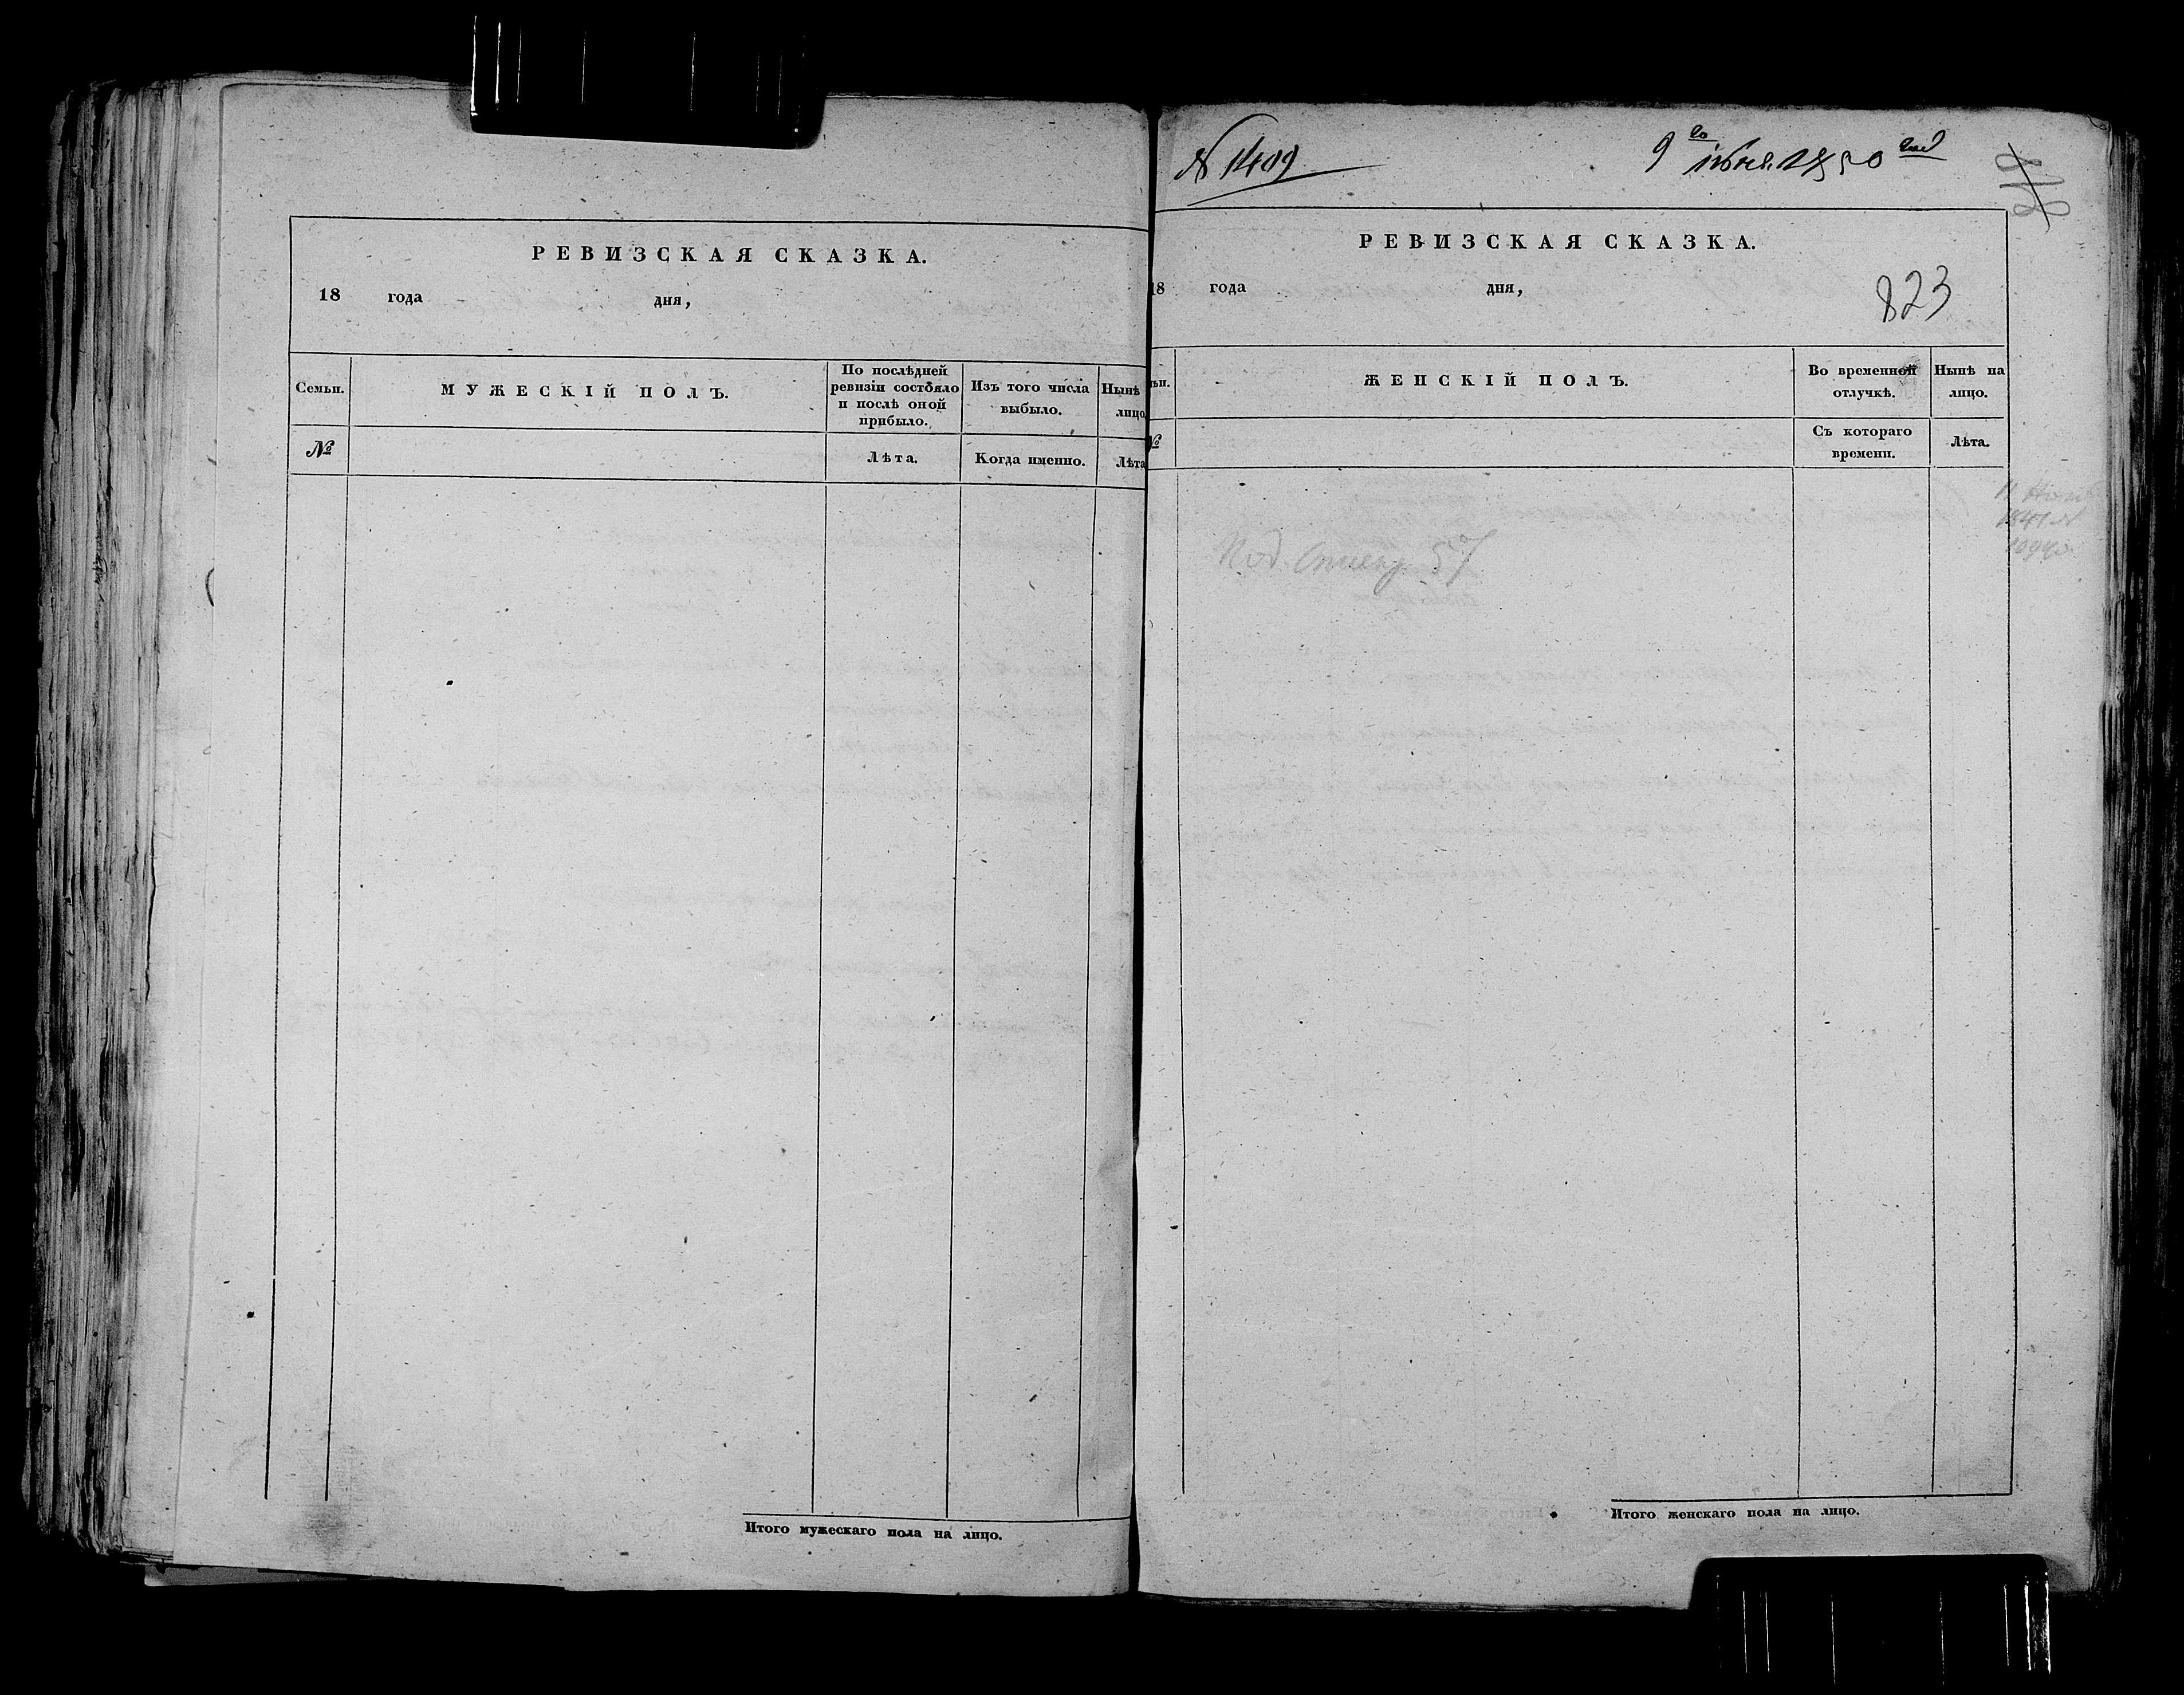 РЕВИЗСКАЯ СКАЗКА.
18 года дня,
Семьи.
МУЖЕСКІЙ ПОЛЪ.
По послѣдней
ревизіи состояло
и послѣ оной
прибыло.
Изъ того числа
выбыло.
Нынѣ
лицо
№
Лѣта.
Когда именно.
Лѣта
Итого мужескаго пола на лицо.
N 1409
9го июня 1850 год
РЕВИЗСКАЯ СКАЗКА.
18 года дня,
823
ьи.
ЖЕНСКІЙ ПОЛЪ.
Во временной
отлучкѣ.
Нынѣ на
лицо.
№
Съ котораго
времени.
Лѣта.
Итого женскаго пола на лицо.